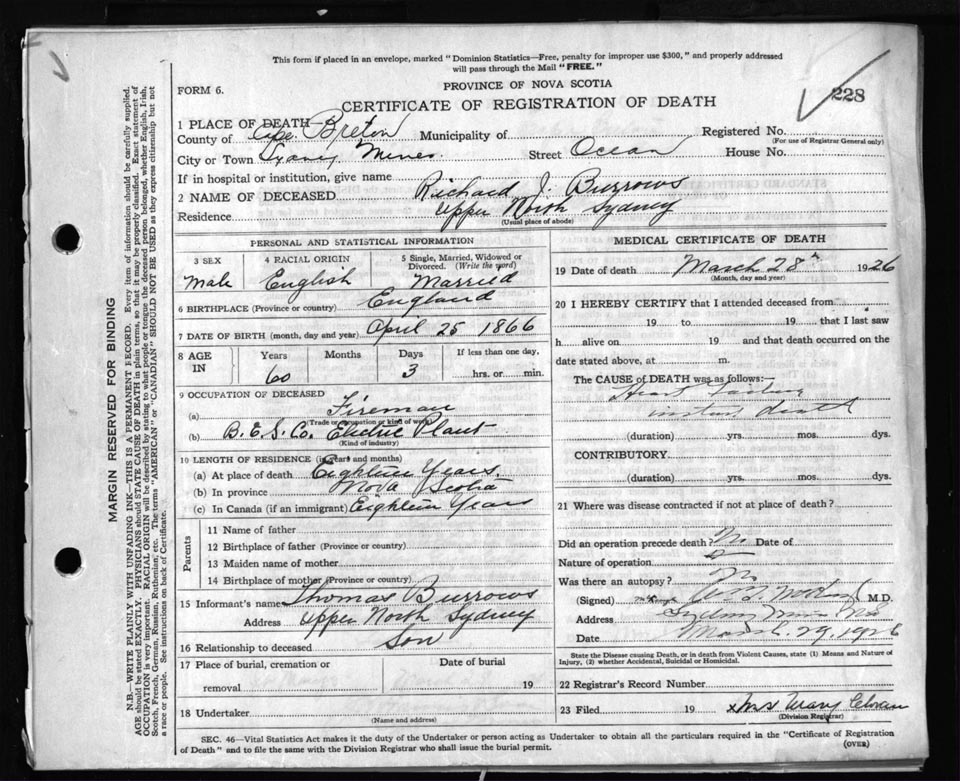 This form if placed in an envelope, marked "Dominion Statistics—Free, penalty for improper use $300," and properly addressed
will pass through the Mail "FREE."
FORM 6.
PROVINCE OF NOVA SCOTIA
CERTIFICATE OF REGISTRATION OF DEATH
228
1 PLACE OF DEATH
County of Cape Breton Municipality of Registered No.
(For use of Registrar General only)
City or Town Sydney Mines Street Ocean House No.
If in hospital or institution, give name
2 NAME OF DECEASED Richard J. Burrows
Residence Upper North Sydney
(Usual place of abode)
PERSONAL AND STATISTICAL INFORMATION
3 SEX
Male
4 RACIAL ORIGIN
English
5 Single, Married, Widowed or
Divorced. (Write the word)
Married
6 BIRTHPLACE (Province or country) England
7 DATE OF BIRTH (month, day and year) April 25 1866
8 AGE IN Years Months Days If less than one day,
60 3 hrs. or min.
9 OCCUPATION OF DECEASED
(a) Fireman
(Trade or occupation or kind of work)
(b) B.E.S.Co. Electric Plant
(Kind of industry)
10 LENGTH OF RESIDENCE (in years and months)
(a) At place of death Eighteen Years
(b) In province Nova Scotia
(c) In Canada (if an immigrant) Eighteen Years
Parents
11 Name of father
12 Birthplace of father (Province or country)
13 Maiden name of mother
14 Birthplace of mother (Province or country)
15 Informant's name Thomas Burrows
Address Upper North Sydney
16 Relationship to deceased Son
17 Place of burial, cremation or
removal
Date of burial
19
18 Undertaker
(Name and address)
MEDICAL CERTIFICATE OF DEATH
19 Date of death March 28th 1926
(Month, day and year)
20 I HEREBY CERTIFY that I attended deceased from
19 to 19 that I last saw
h alive on 19 and that death occurred on the
date stated above, at m.
The CAUSE OF DEATH was as follows:—
Heart failure
instant death
(duration) yrs. mos. dys.
CONTRIBUTORY
(duration) yrs. mos. dys.
21 Where was disease contracted if not at place of death?
Did an operation precede death? No Date of
Nature of operation
Was there an autopsy? No
(Signed) M.D.
Address Sydney Mines NS
Date March 29. 1926
State the Disease causing Death, or in death from Violent Causes, state (1) Means and Nature of
Injury, (2) whether Accidental, Suicidal or Homicidal.
22 Registrar's Record Number
23 Filed 19 x Mrs Mary
(Division Registrar)
SEC. 46—Vital Statistics Act makes it the duty of the Undertaker or person acting as Undertaker to obtain all the particulars required in the "Certificate of Registration
of Death" and to file the same with the Division Registrar who shall issue the burial permit.
(OVER)
MARGIN RESERVED FOR BINDING
N.B.—WRITE PLAINLY WITH UNFADING INK—THIS IS A PERMANENT RECORD. Every item of information should be carefully supplied.
AGE should be stated EXACTLY. PHYSICIANS should STATE CAUSE OF DEATH in plain terms, so that it may be properly classified. Exact statement of
OCCUPATION is very important. RACIAL ORIGIN will be described by stating to what people or tongue the deceased person belonged, whether English, Irish,
Scotch, French, German, Russian, Ruthenian, etc. The terms "AMERICAN" or "CANADIAN" SHOULD NOT BE USED as they express citizenship but not
a race or people. See instructions on back of Certificate.